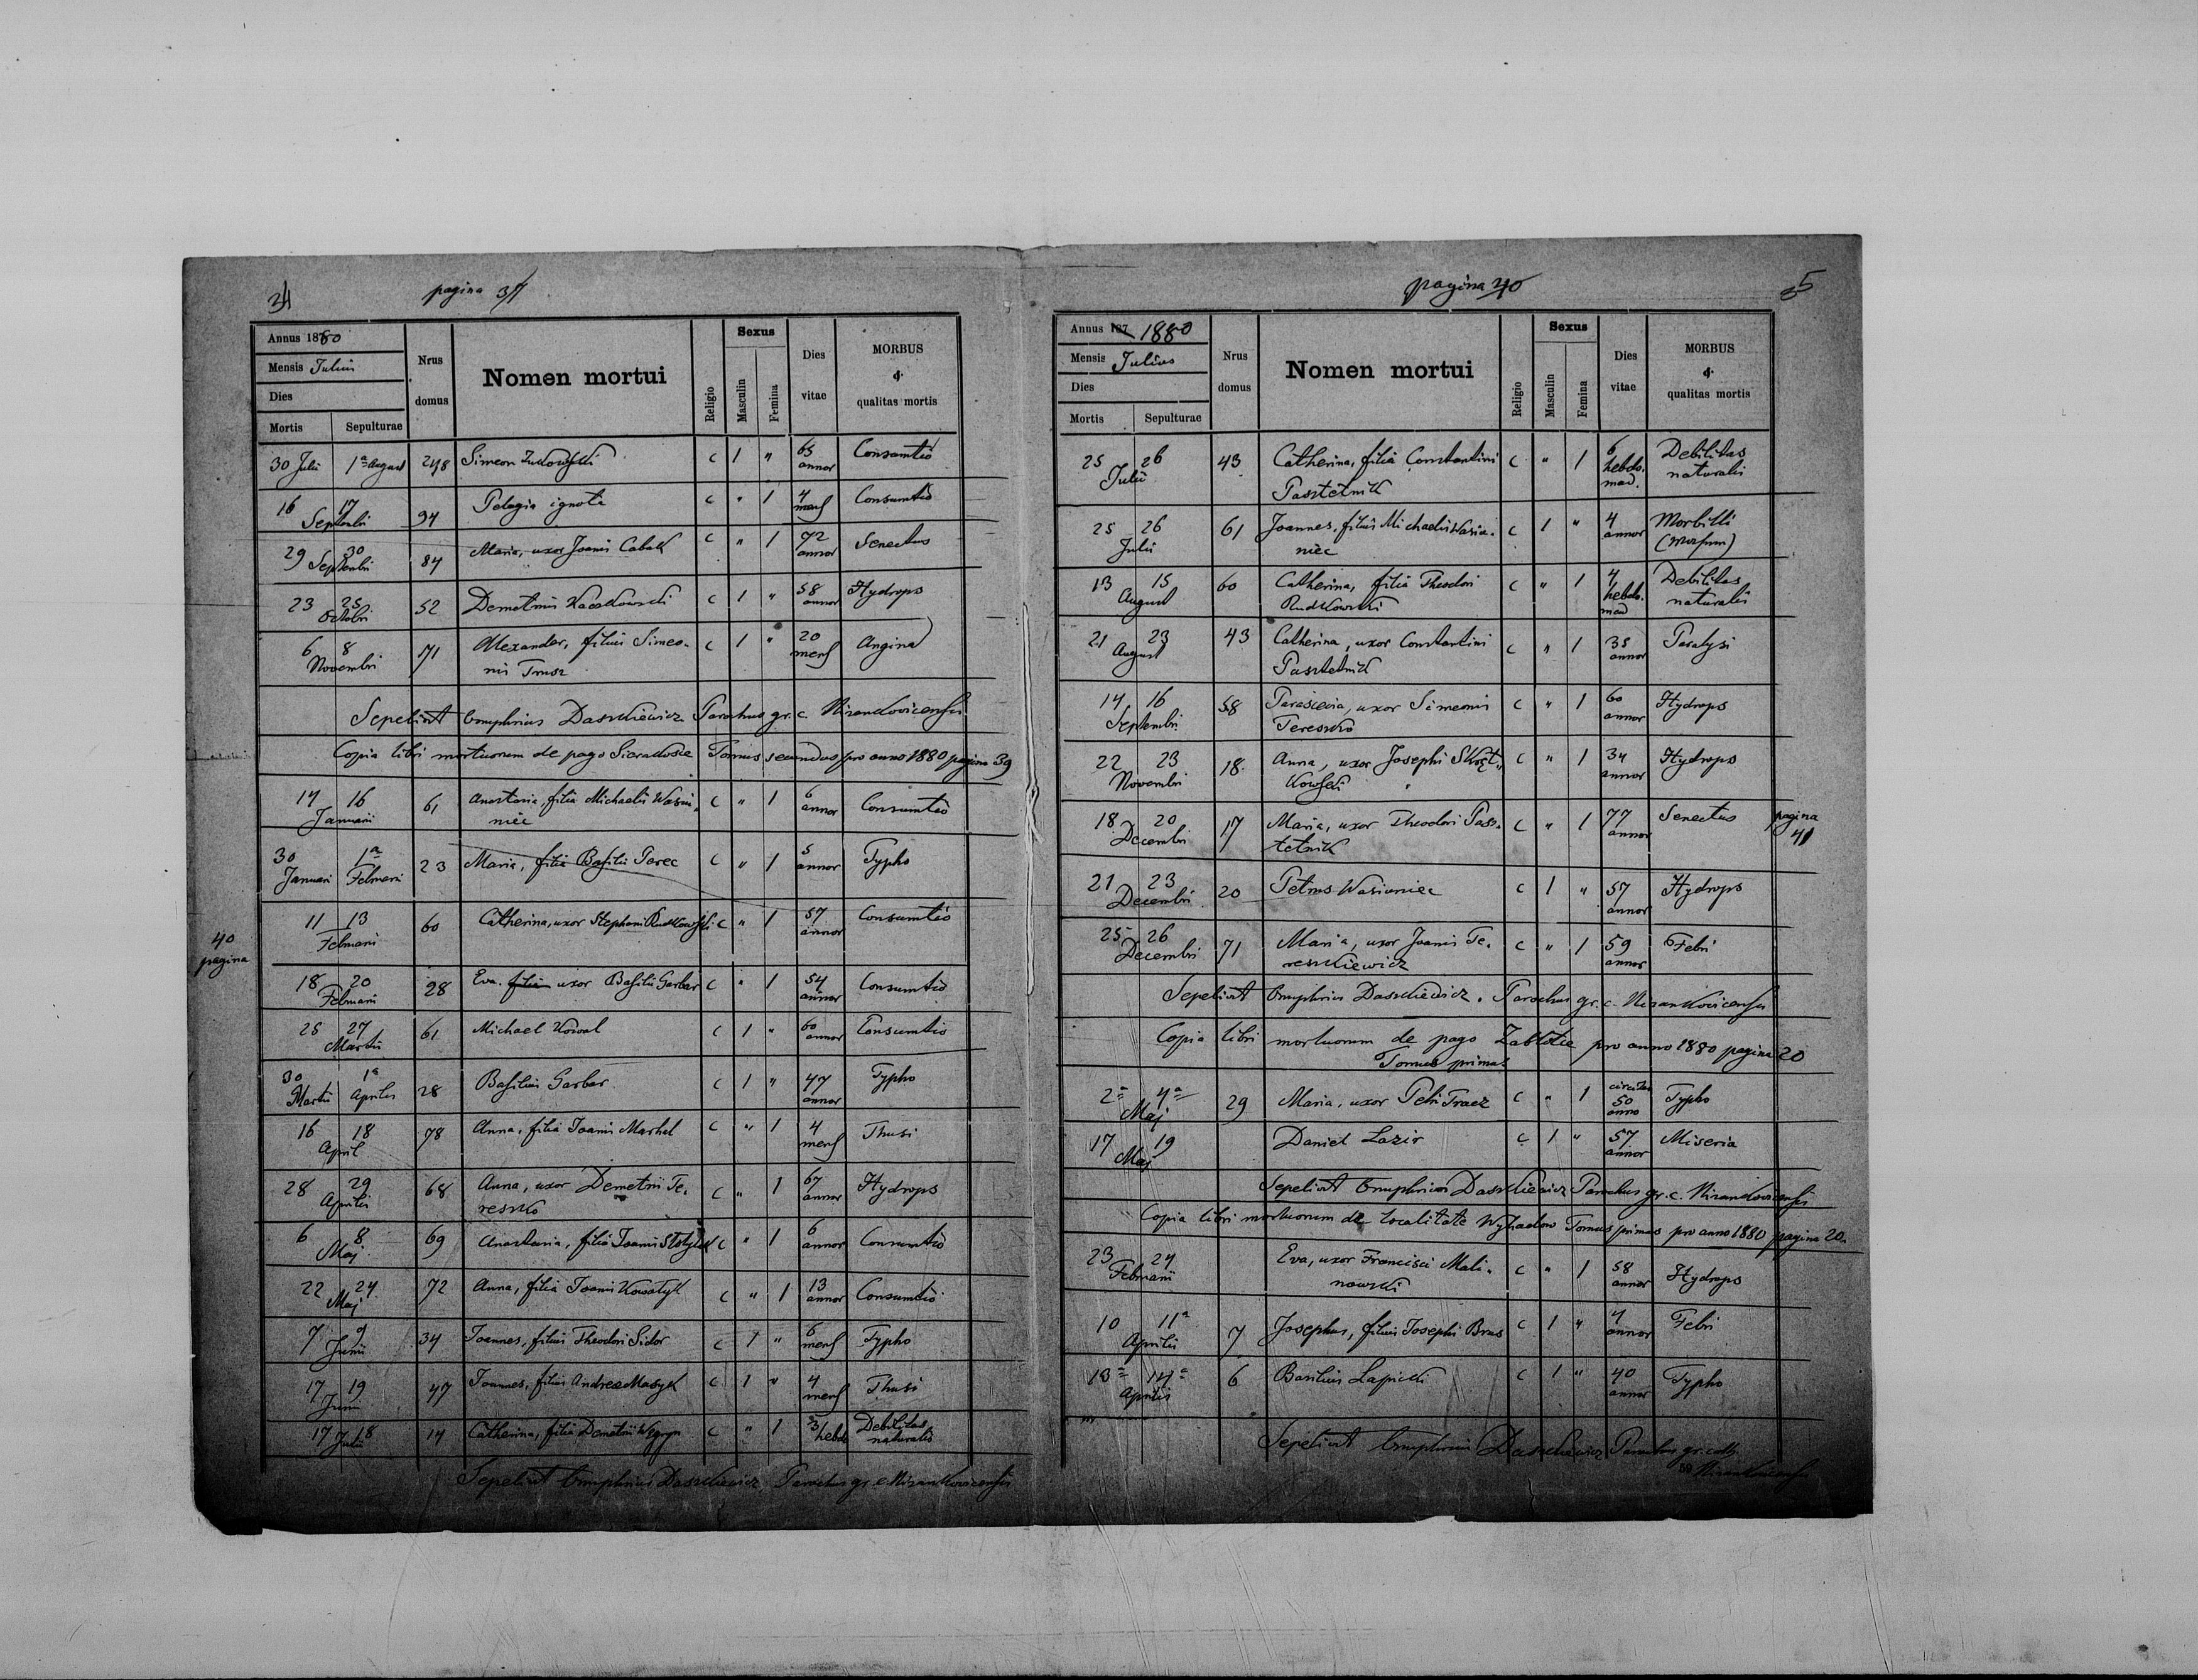 34
pagina 37
Annus 1880
Mensis Julius
Dies
Mortis Sepulturae
Nrus domus
Nomen mortui
Religio
Sexus
Masculin
Femina
Dies vitae
MORBUS
qualitas mortis
30 Julii 1ª August 248 Simeon Zukowski c 1 " 65 annor Consumtio
16 17 Septembri 94 Pelagia ignota c " 1 4 mens Consumtio
29 30 Septembri 84 Maria, uxor Joanis Cabak c " 1 72 annor Senectus
23 25 Octobri 52 Demetrius Kaczkowski c 1 " 58 annor Hydrops
6 8 Novembri 71 Alexander, filius Simeo-
nis Trusz c 1 " 20 mens Angina
Sepelivit Onuphrius Daszkiewicz Parochus gr. c. Nizankovicensis
Copia libri mortuorum de pago Sierakosce Tomus secundus pro anno 1880 pagina 39
14 16 Januarii 61 Anastasia, filia Michaelis Wasiu-
niec c " 1 6 annor Consumtio
30 Januari 1ª Februarii 23 Maria, filia Basilii Parec c " 1 5 annor Typho
40 pagina
11 13 Februarii 60 Catherina, uxor Stephani Rudkowski c " 1 57 annor Consumtio
18 20 Februarii 28 Eva filia uxor Basilii Garbar c " 1 54 annor Consumtio
25 27 Martii 61 Michael Kowal c 1 " 60 annor Consumtio
30 Martii 1ª Aprilis 28 Basilius Garbar c 1 " 47 annor Typho
16 18 April 78 Anna, filia Joanis Markel c " 1 4 mens Thusi
28 29 Aprilis 68 Anna, uxor Demetrii Te-
reszko c " 1 67 annor Hydrops
6 8 Maj 69 Anastasia, filia Joanis c " 1 6 annor Consumtio
22 24 Maj 72 Anna, filia Joanis Kowalyk c " 1 13 annor Consumtio
7 9 Junii 34 Joannes, filius Theodori Sidor c 1 " 6 mens Typho
17 19 Junii 47 Joannes, filius Andreae Masyk c 1 " 4 mens Thusi
17 18 Julii 14 Catherina, filia Demetrii Węgryn c " 1 3 hebdo Debilitas naturalis
Sepelivit Onuphrius Daszkiewicz, Parochus gr. c. Nizankovicensis
pagina 40
35
Annus 187 1880
Mensis Julius
Dies
Mortis Sepulturae
Nrus domus
Nomen mortui
Religio
Sexus
Masculin
Femina
Dies vitae
MORBUS
qualitas mortis
25 26 Julii 43 Catherina, filia Constantini
Pasztetnik c " 1 6 hebdo. mad. Debilitas naturalis
25 26 Julii 61 Joannes, filius Michaelis Wasiu-
niec c 1 " 4 annor Morbilli
13 15 August 60 Catherina, filia Theodori
Rudkowski c " 1 4 hebdo. mad Debilitas naturalis
21 23 August 43 Catherina, uxor Constantini
Pasztetnik c " 1 35 annor Paralysi
14 16 Septembri 58 Parascevia, uxor Simeonis
Tereszko c " 1 60 annor Hydrops
22 23 Novembri 18 Anna, uxor Josephi Skręt-
kowski c " 1 34 annor Hydrops
18 20 Decembri 17 Maria, uxor Theodori Pasz-
tetnik c " 1 77 annor Senectus pagina 41
21 23 Decembri 20 Petrus Wasiuniec c 1 " 57 annor Hydrops
25 26 Decembri 71 Maria, uxor Joanis Te-
reszkiewicz c " 1 59 annor Febri
Sepelivit Onuphrius Daszkiewicz. Parochus gr. c. Nizankovicensis
Copia libri mortuorum de pago Zablotce pro anno 1880 pagina 20
Tomus primus
2ª 4ª Maj 29 Maria, uxor Petri Tracz c " 1 circiter 50 anno Typho
17 19 Maj Daniel Lazir c 1 " 57 annor Miseria
Sepelivit Onuphrius Daszkiewicz Parochus gr. c. Nizankovicensis
Copia libri mortuorum de localitate Wyhadow Tomus primus pro anno 1880 pagina 20.
23 24 Februarii Eva, uxor Francisci Mali-
nowski c " 1 58 annor Hydrops
10 11ª Aprilis 7 Josephus, filius Josephi Brus c 1 " 4 annor Febri
13ª 14ª Aprilis 6 Basilius Lapicki c 1 " 40 annor Typho
Sepelivit Onuphrius Daszkiewicz Parochus gr. cath.
Nizankovicensis
59